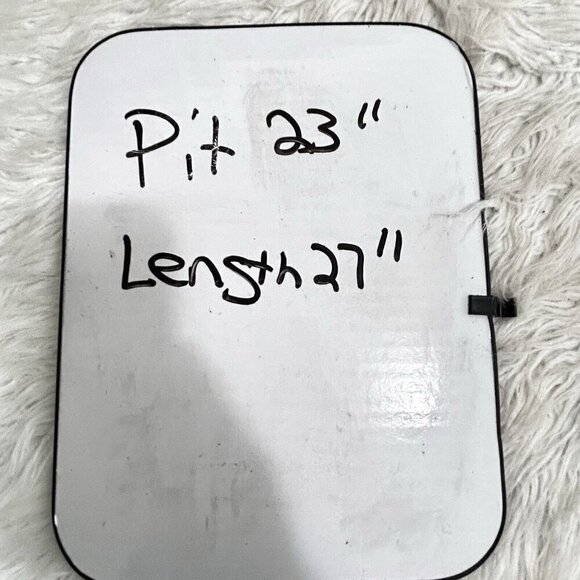 Pit 23"
Length 27"